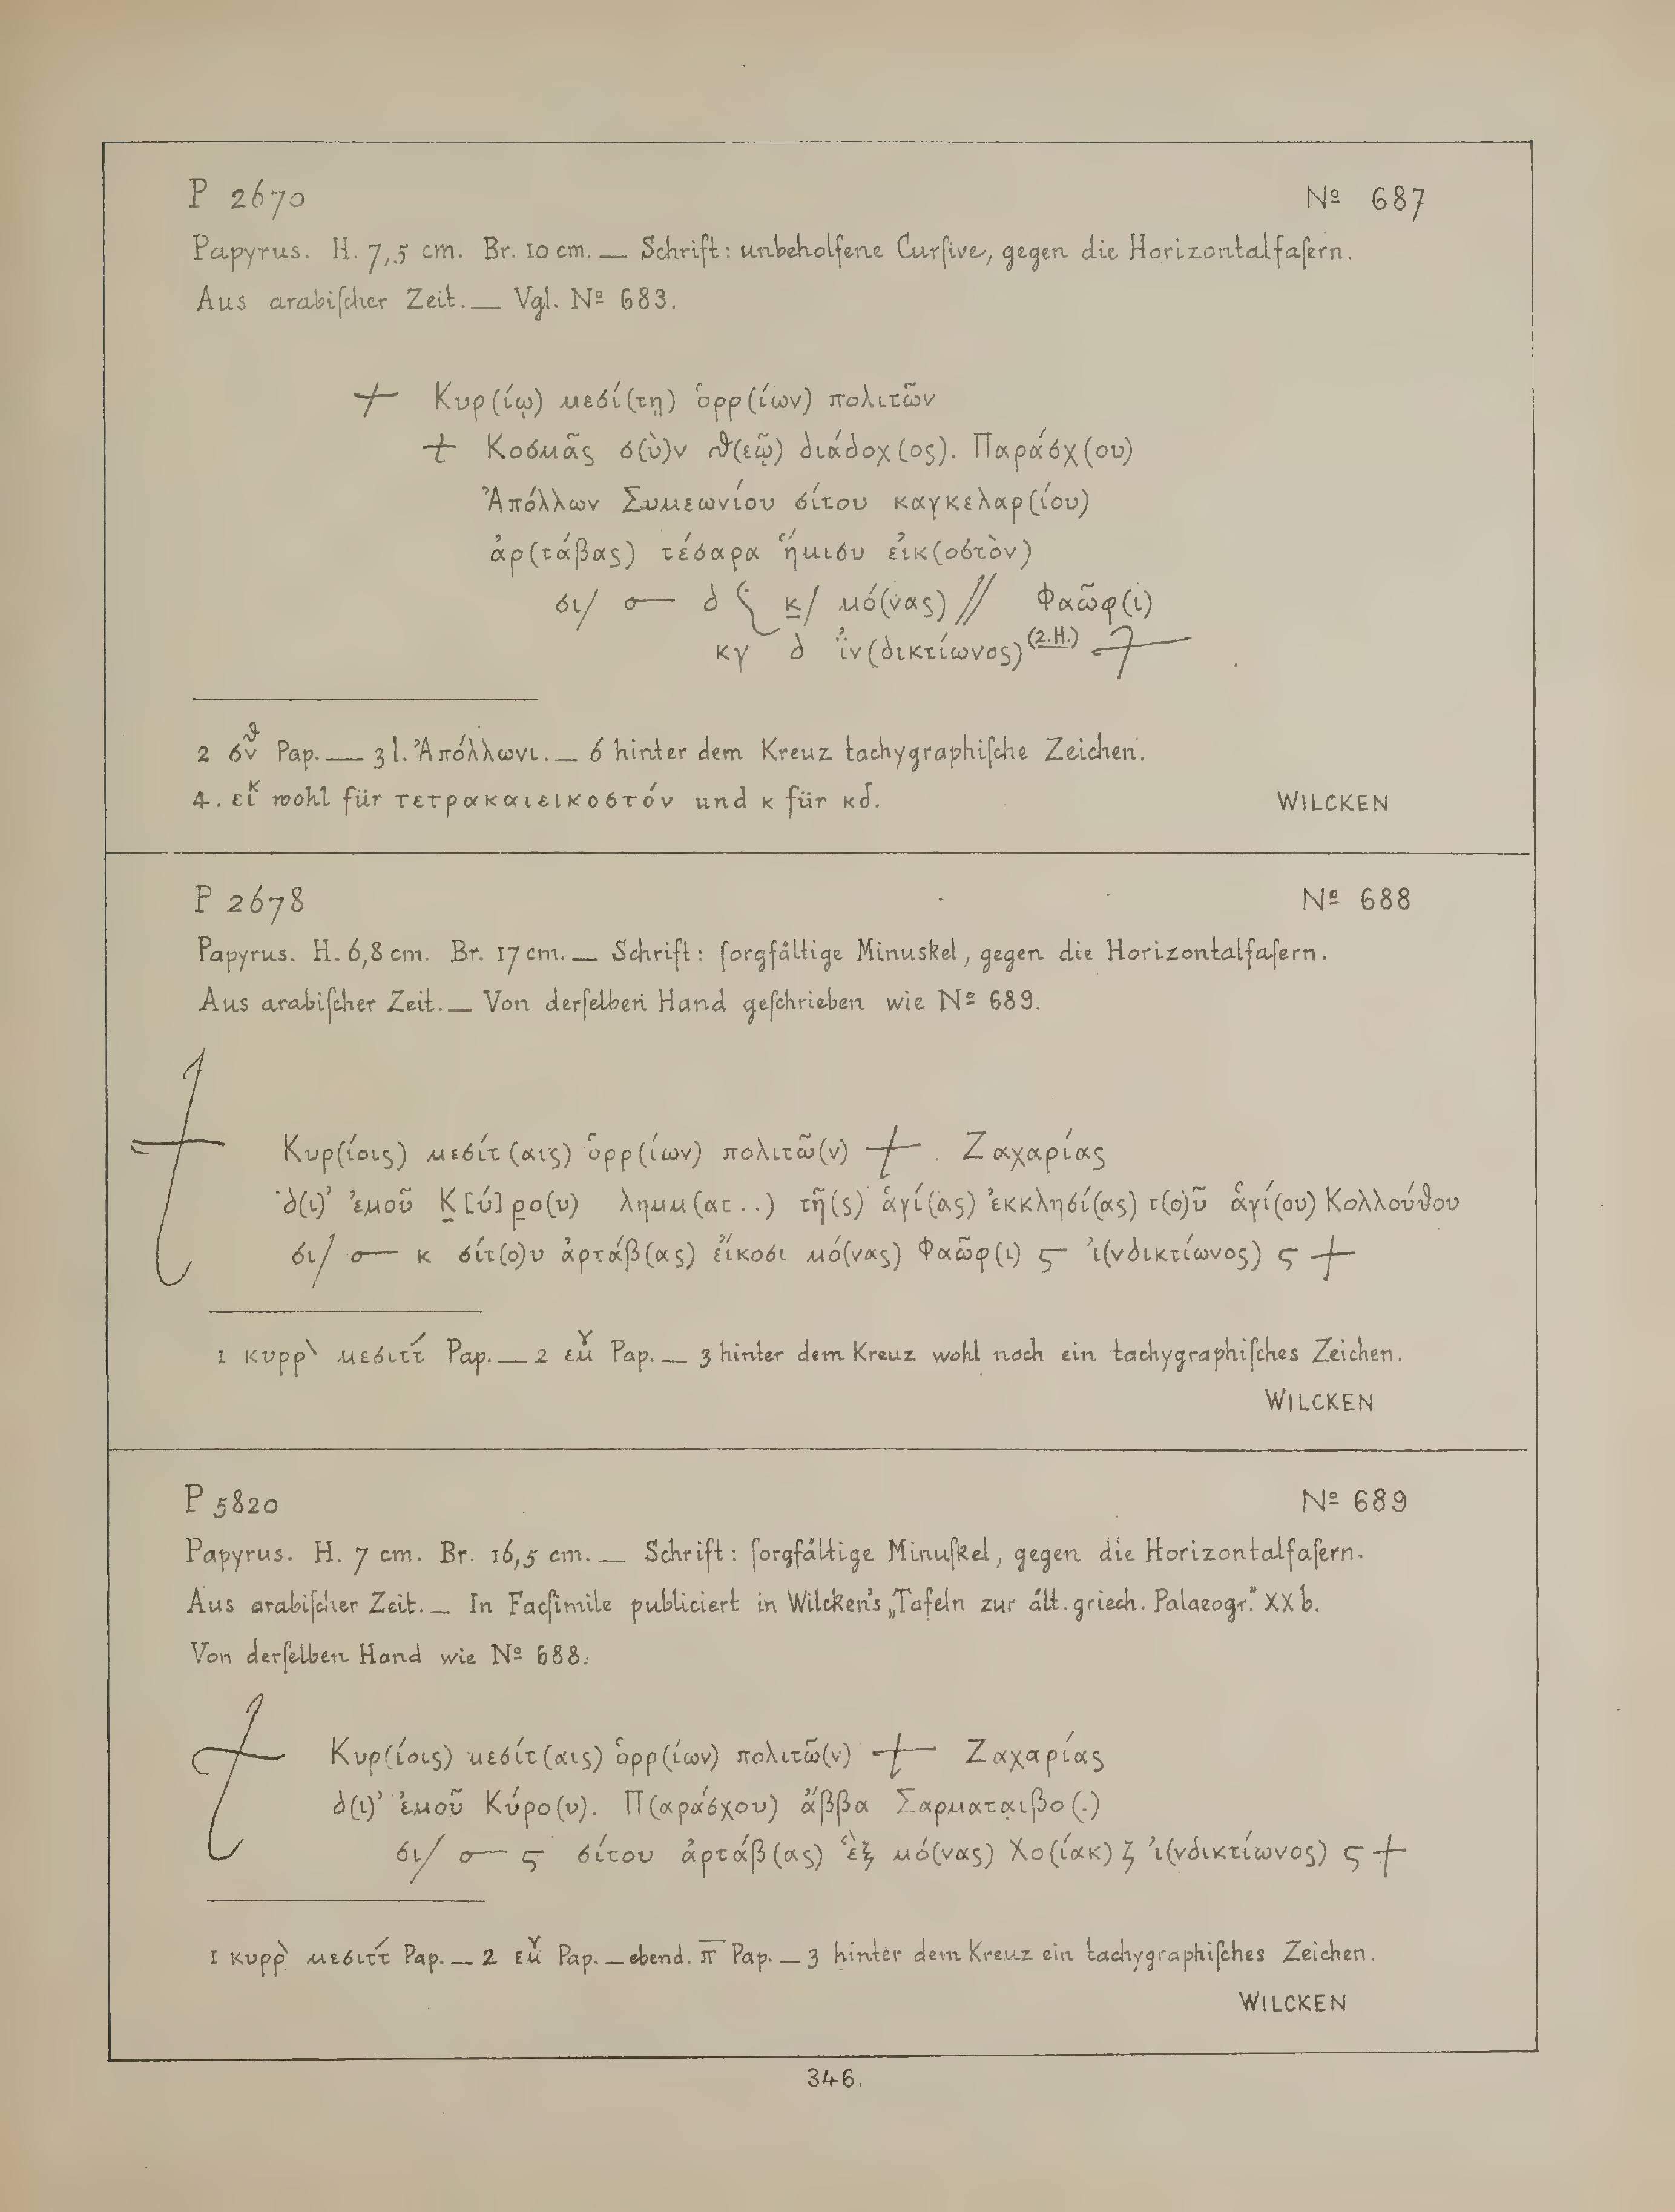 P 2670 Nº 687
Papyrus. H. 7,5 cm. Br. 10 cm. — Schrift: unbeholfene Curſive, gegen die Horizontalfaſern.
Aus arabiſcher Zeit. — Vgl. Nº 683.
+ Κυρ(ίῳ) μεσί(τῃ) ὁρρ(ίων) πολιτῶν
+ Κοσμᾶς σ(ὺ)ν θ(εῷ) διάδοχ(ος). Παράσχ(ου)
Ἀπόλλων Συμεωνίου σίτου καγκελαρ(ίου)
ἀρ(τάβας) τέσαρα ἥμισυ εἰκ(οστὸν)
σι/ δ κ̣/ μό(νας) // Φαῶφ(ι)
κγ δ ἰν(δικτίωνος) (2.H.)
2 σν̄θ Pap. — 3 l. Ἀπόλλωνι. — 6 hinter dem Kreuz tachygraphiſche Zeichen.
4. ει̅κ wohl für τετρακαιεικοστόν und κ für κδ.
WILCKEN
P 2678 Nº 688
Papyrus. H. 6,8 cm. Br. 17 cm. — Schrift: ſorgfältige Minuskel, gegen die Horizontalfaſern.
Aus arabiſcher Zeit. — Von derſelben Hand geſchrieben wie Nº 689.
Κυρ(ίοις) μεσίτ(αις) ὁρρ(ίων) πολιτῶ(ν) + . Ζαχαρίας
δ(ι)' ἐμοῦ Κ̣[ύ]ρ̣ο(υ) λημμ(ατ..) τῆ(ς) ἁγί(ας) ἐκκλησί(ας) τ(ο)ῦ ἁγί(ου) Κολλούθου
σι/ κ σίτ(ο)υ ἀρτάβ(ας) εἴκοσι μό(νας) Φαῶφ(ι) ς ἰ(νδικτίωνος) ς +
1 κυρρ` μεσιττ́ Pap. — 2 εμ̄γ Pap. — 3 hinter dem Kreuz wohl noch ein tachygraphiſches Zeichen.
WILCKEN
P 5820 Nº 689
Papyrus. H. 7 cm. Br. 16,5 cm. — Schrift: ſorgfältige Minuſkel, gegen die Horizontalfaſern.
Aus arabiſcher Zeit. — In Facſimile publiciert in Wilcken's „Tafeln zur ält. griech. Palaeogr." XX b.
Von derſelben Hand wie Nº 688.
Κυρ(ίοις) μεσίτ(αις) ὁρρ(ίων) πολιτῶ(ν) + Ζαχαρίας
δ(ι)' ἐμοῦ Κύρο(υ). Π(αράσχου) ἄββα Σαρματα̣ιβο(.)
σι/ ς σίτου ἀρτάβ(ας) ἓξ μό(νας) Χο(ίακ) ζ ἰ(νδικτίωνος) ς +
1 κυρρ` μεσιττ́ Pap. — 2 εμ̄γ Pap. — ebend. π̅ Pap. — 3 hinter dem Kreuz ein tachygraphiſches Zeichen.
WILCKEN
346.